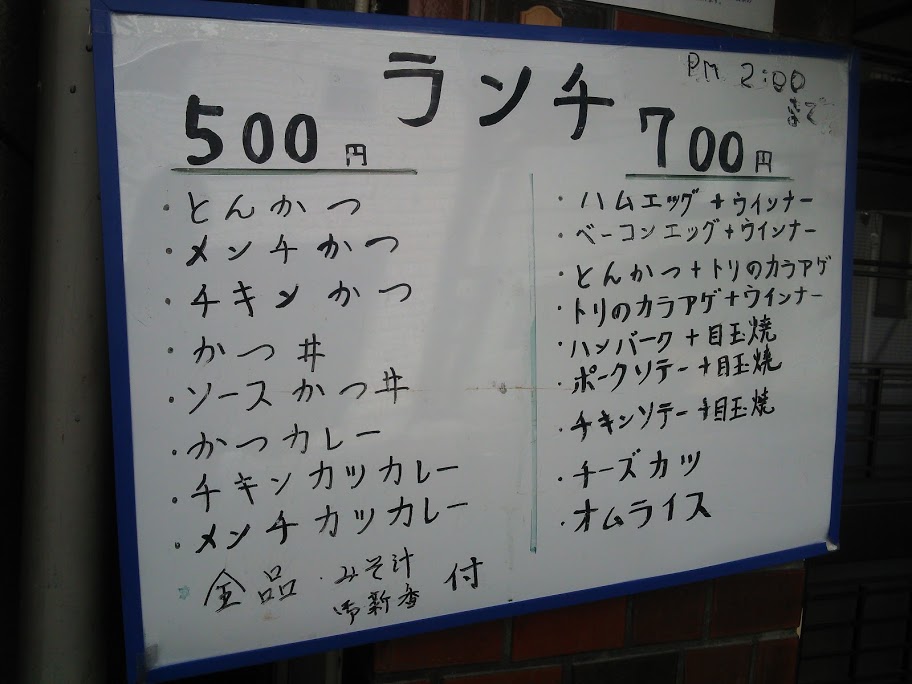 ランチ
PM 2:00
まで
500円
・とんかつ
・メンチかつ
・チキンかつ
・かつ丼
・ソースかつ丼
・かつカレー
・チキンカツカレー
・メンチカツカレー
全品・みそ汁
御新香 付
700円
・ハムエッグ+ウインナー
・ベーコンエッグ+ウインナー
・とんかつ+トリのカラアゲ
・トリのカラアゲ+ウインナー
・ハンバーク+目玉焼
・ポークソテー+目玉焼
・チキンソテー+目玉焼
・チーズカツ
・オムライス